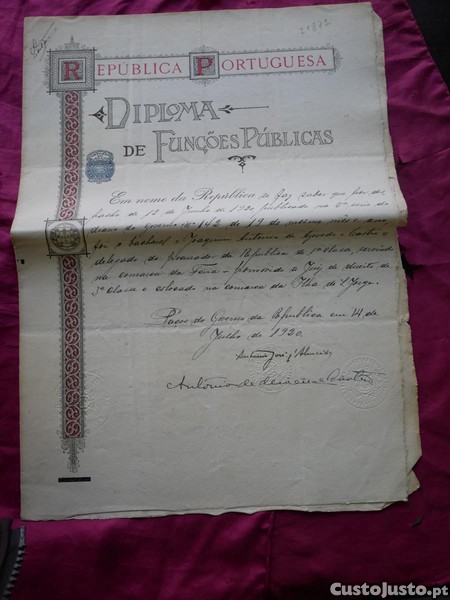 REPÚBLICA PORTUGUESA
DIPLOMA
DE FUNÇÕES PÚBLICAS
Em nome da República se faz saber que por des-
pacho de 12 de Junho de 1920 publicado na 2ª serie do
diario do Governo nº 142 de 19 do mesmo mês e ano
foi o bacharel Joaquim Antonio de e Castro
delegado do procurador da Republica de 1ª classe, servindo
na comarca da Feira promovido a Juiz de direito de
3ª classe e colocado na comarca da Ilha de S. Jorge.
Paços do Governo da Republica em 14 de
Julho de 1920.
Antonio José d'Almeida
Antonio de Oliveira e Castro
CustoJusto.pt